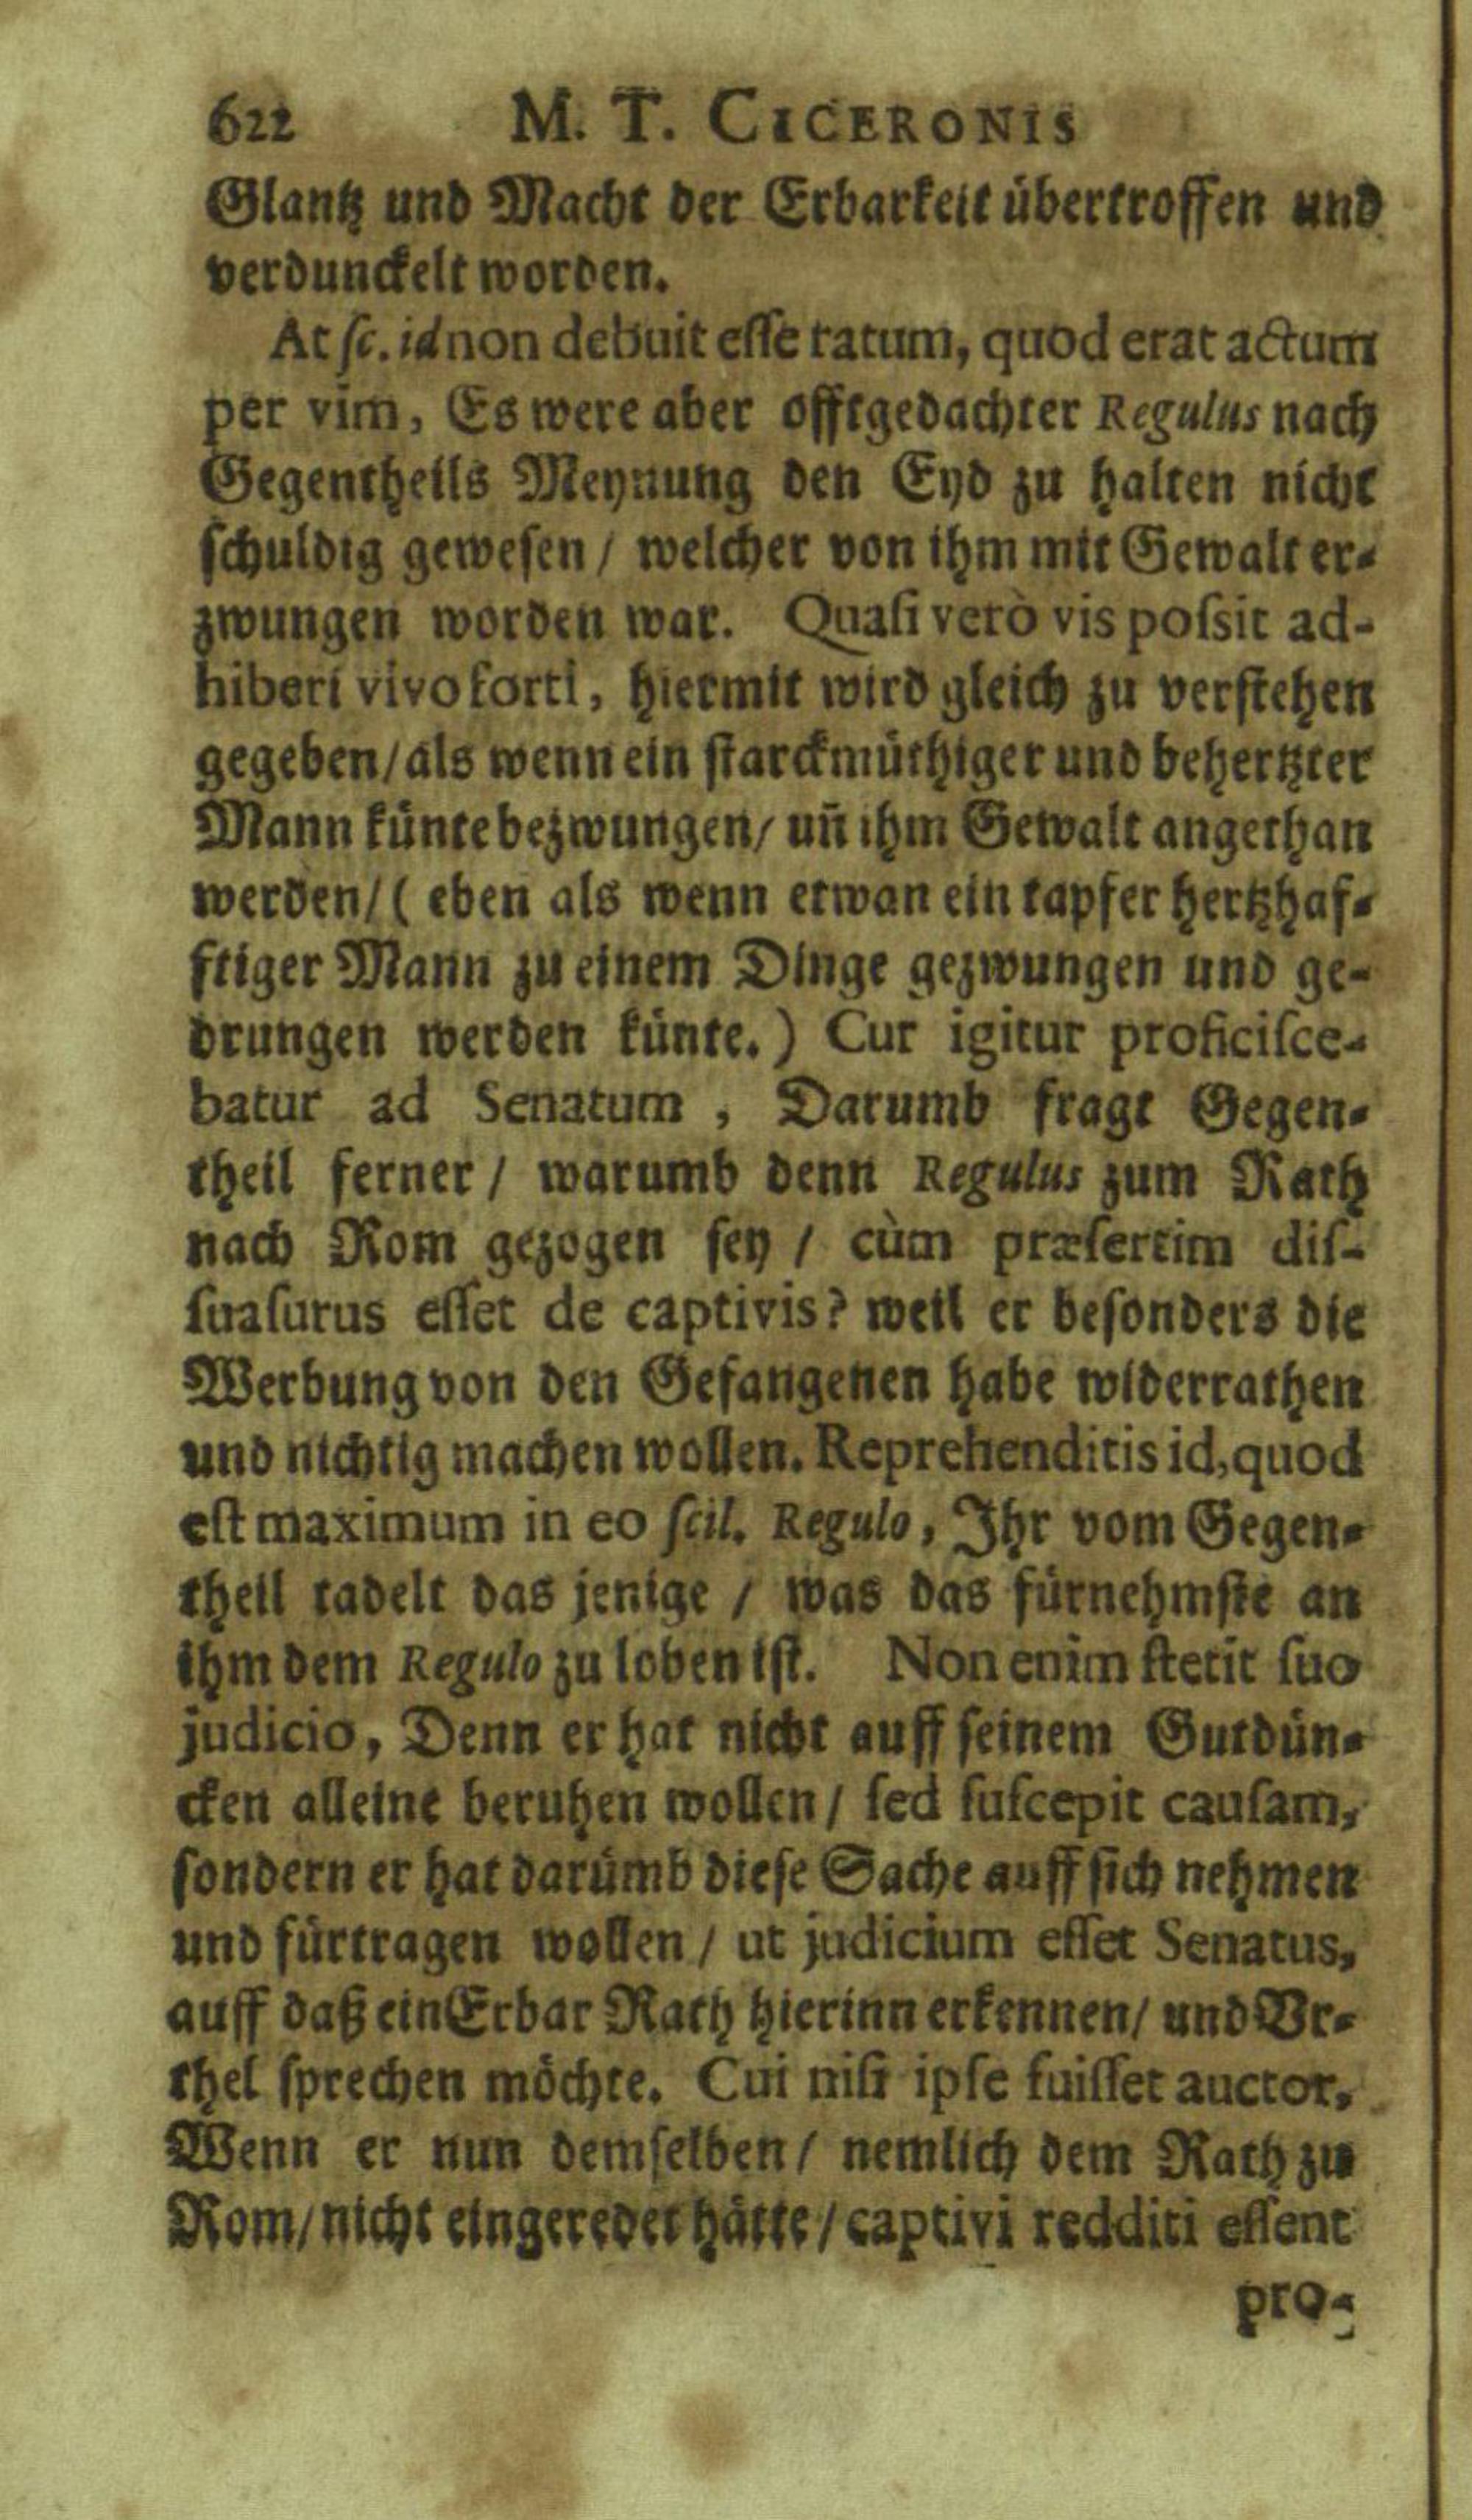 622 M. T. CICERONIS
Glantz und Macht der Erbarkeit übertroffen und
verdunckelt worden.
At ſc. id non debuit eſſe ratum, quod erat actum
per vim, Es were aber offtgedachter Regulus nach
Gegentheils Meynung den Eyd zu halten nicht
ſchuldig geweſen / welcher von ihm mit Gewalt er-
zwungen worden war. Quaſi verò vis poſsit ad-
hiberi vivo forti, hiermit wird gleich zu verſtehen
gegeben/ als wenn ein ſtarckmüthiger und behertzter
Mann künte bezwungen/ uñ ihm Gewalt angethan
werden/ ( eben als wenn etwan ein tapfer hertzhaf-
ftiger Mann zu einem Dinge gezwungen und ge-
drungen werden künte.) Cur igitur proficiſce-
batur ad Senatum , Darumb fragt Gegen-
theil ferner / warumb denn Regulus zum Rath
nach Rom gezogen ſey / cùm præſertim diſ-
ſuaſurus eſſet de captivis? weil er beſonders die
Werbung von den Gefangenen habe widerrathen
und nichtig machen wollen. Reprehenditis id, quod
eſt maximum in eo ſcil. Regulo, Ihr vom Gegen-
theil tadelt das jenige / was das fürnehmſte an
ihm dem Regulo zu loben iſt. Non enim ſtetit ſuo
judicio, Denn er hat nicht auff ſeinem Gutdün-
cken alleine beruhen wollen / ſed ſuſcepit cauſam,
ſondern er hat darümb dieſe Sache auff ſich nehmen
und fürtragen wollen / ut judicium eſſet Senatus,
auff daß ein Erbar Rath hierinn erkennen/ und Vr-
thel ſprechen möchte. Cui niſi ipſe fuiſſet auctor,
Wenn er nun demſelben / nemlich dem Rath zu
Rom/ nicht eingeredet hätte / captivi redditi eſſent
pro-